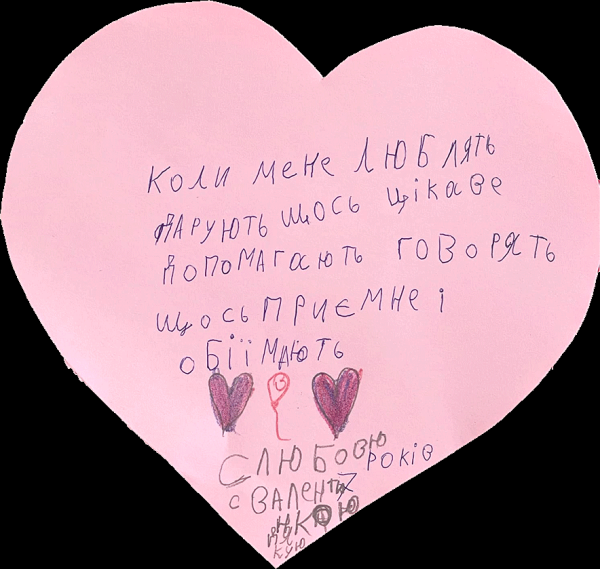 коли мене люблять
дарують щось цікаве
допомагають говорять
щось приємне і
обіїмають
Слюбовю
7 років
с Валенти
нкою
дя
кую